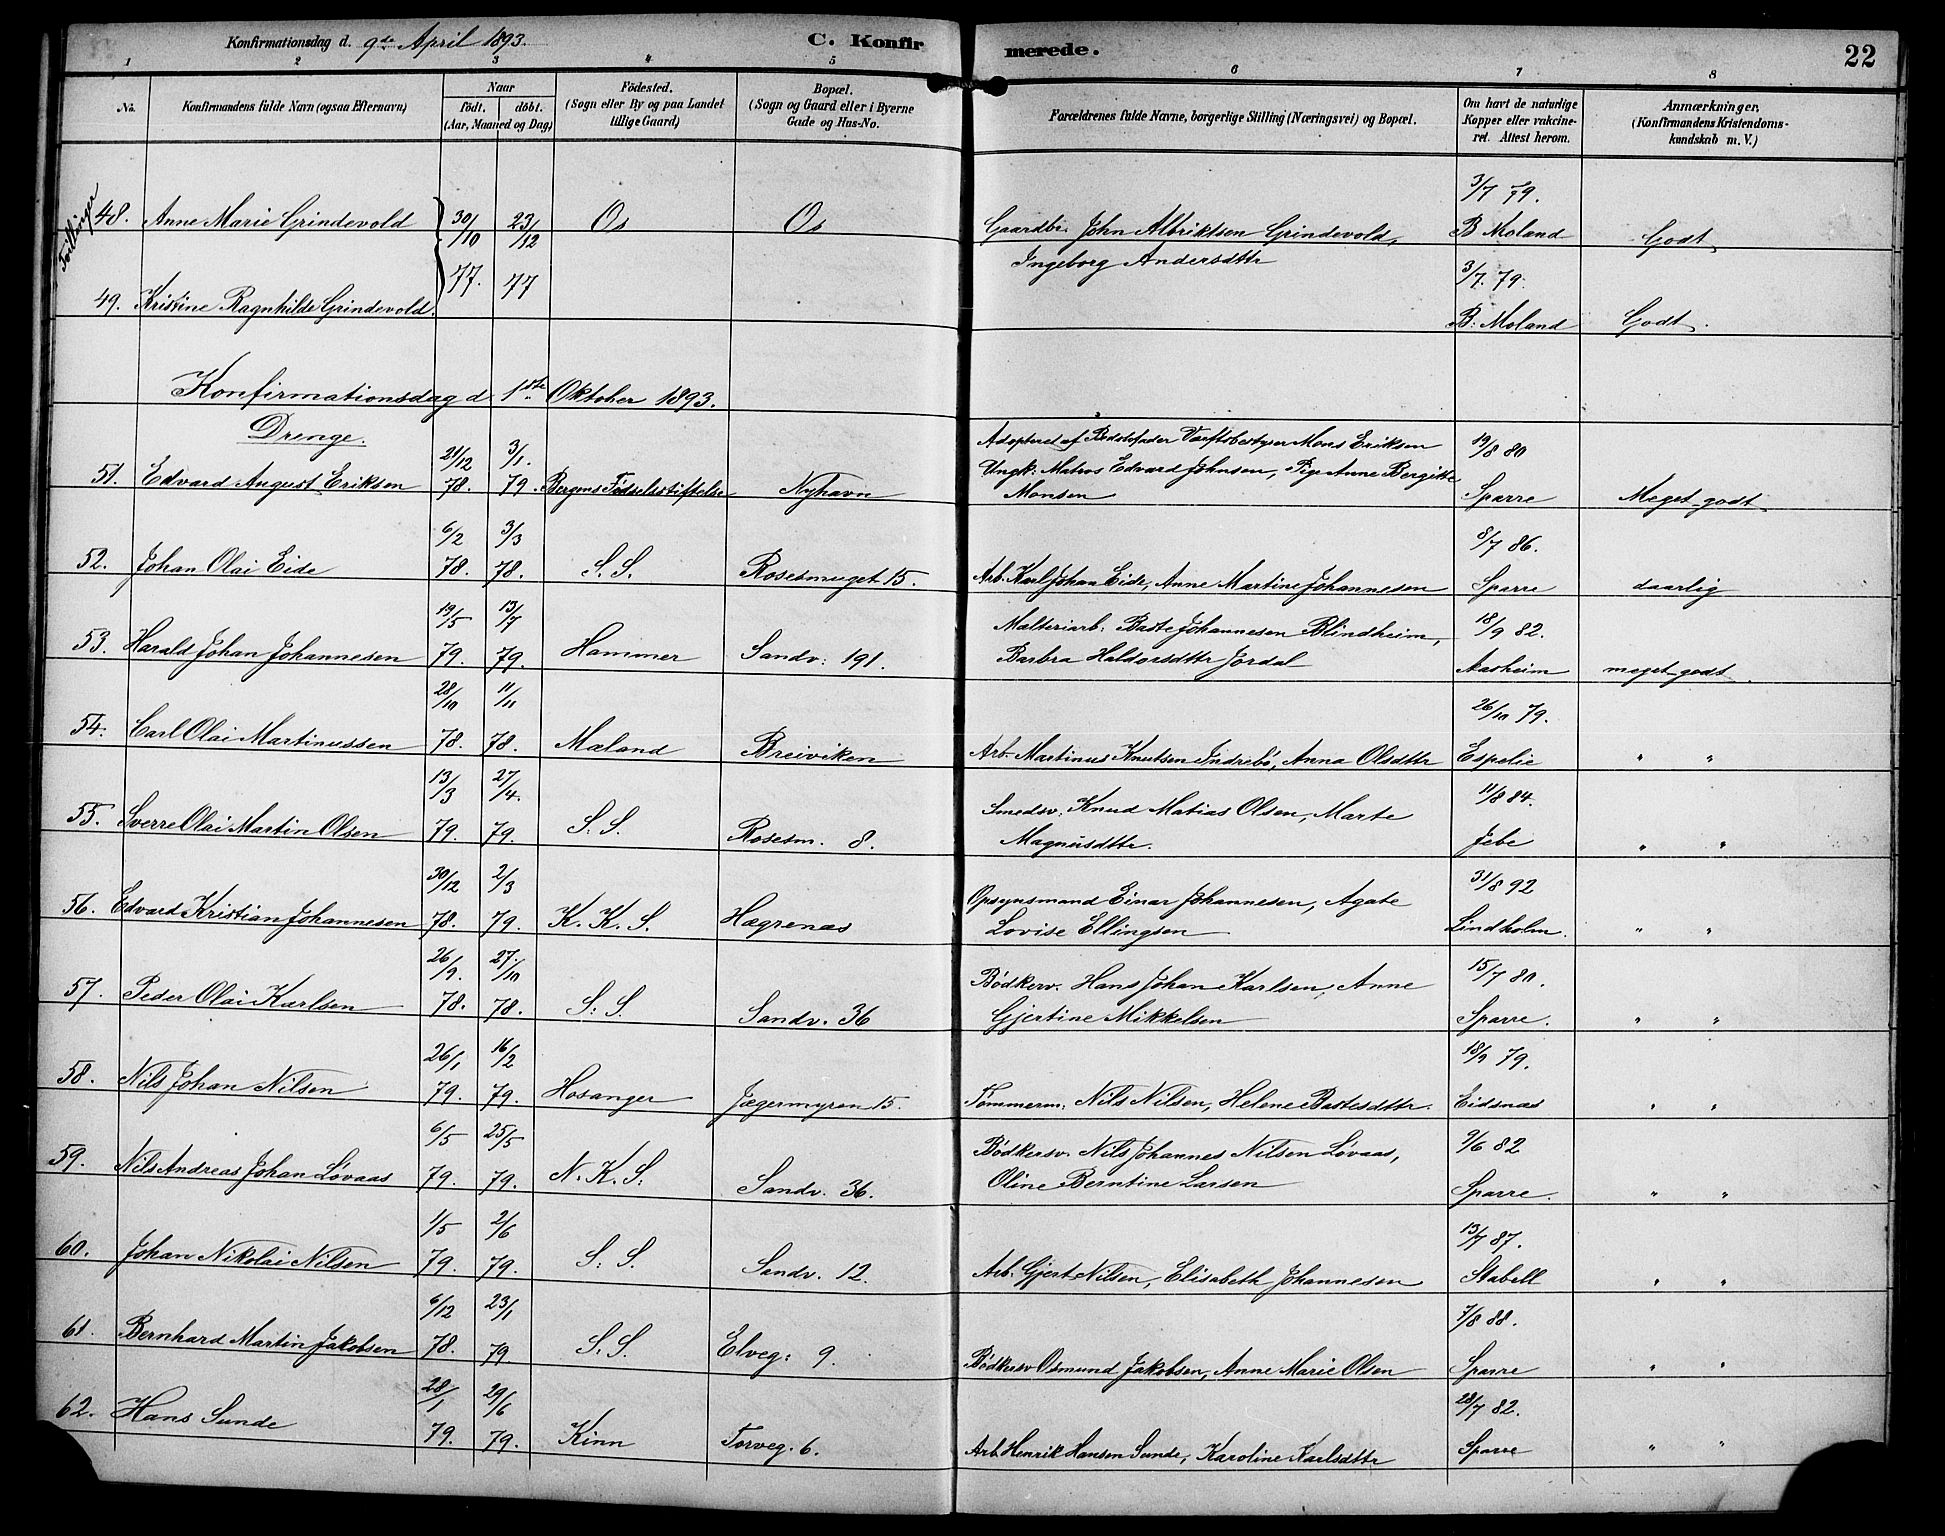 Konfirmationsdag d. 9de April 1893. C. Konfirmerede. 22
1 2 3 4 5 6 7 8
No. Konfirmandens fulde Navn (ogsaa Efternavn) Naar født. døbt. (Aar, Maaned og Dag) Fødested. (Sogn eller By og paa Landet tillige Gaard) Bopæl. (Sogn og Gaard eller i Byerne Gade og Hus-No. Forældrenes fulde Navne, borgerlige Stilling (Næringsvei) og Bopæl. Om havt de naturlige Kopper eller vakcineret. Attest herom. Anmærkninger. (Konfirmandens Kristendomskundskab m. V.)
Tvillinger
48. Anne Marie Grindevold 30/10 77. 23/12 77 Os Os Gaardbr. John Albriktsen Grindevold, Ingeborg Andersdttr 3/7 79. B. Moland Godt
49. Kristine Ragnhilde Grindevold. 3/7. 79. B. Moland Godt.
Konfirmationsdag d. 1ste Oktober 1893.
Drenge.
51. Edvard August Eriksen 21/12 78. 3/1. 79. Bergens Fødselsstiftelse Nyhavn Adopteret af Bedstefader Værftsbestyrer Mons Eriksen Ungk: Matros Edvard Johnsen, Pige Anne Bergitte Monsen 19/8 80 Sparre Meget godt
52. Johan Olai Eide 6/2 78. 3/3 78. S. S. Rosesmuget 15. Arb. Karl Johan Eide, Anne Martine Johannesen 8/7 86. Sparre daarlig
53. Harald Johan Johannesen 19/5 79. 13/7 79. Hammer Sandv: 191. Malteriarb: Baste Johannesen Blindheim, Barbra Haldorsdttr Jordal 18/9 82. Aasheim meget godt.
54. Carl Olai Martinussen 28/10 78. 11/11 78. Mæland Breiviken Arb. Martinus Knutsen Indrebø, Anna Olsdttr 26/10 79. Espelie " "
55. Sverre Olai Martin Olsen 13/3 79. 27/4. 79. S. S. Rosesm. 8. Smedsv. Knud Matias Olsen, Marte Magnusdttr. 11/8 84. Jebe " "
56. Edvard Kristian Johannesen 30/12 78. 2/3 79. K. K. S. Hægrenæs Opsynsmand Einar Johannesen, Agate Lovise Ellingsen 31/8 92 Lindholm. " "
57. Peder Olai Karlsen 26/9. 78. 27/10 78. S. S. Sandv. 36 Bødkersv. Hans Johan Karlsen, Anne Gjertine Mikkelsen 15/7 80. Sparre. " "
58. Nils Johan Nilsen 26/1 79. 16/2 79. Hosanger Jægermyren 15. Tømmerm. Nils Nilsen, Helene Bastesdttr. 18/9 79. Eidsnæs " "
59. Nils Andreas Johan Løvaas 6/5 79. 25/5 79. N. K. S. Sandv. 36. Bødkersv. Nils Johannes Nilsen Løvaas, Oline Berntine Larsen 9/6 82 Sparre. " "
60. Johan Nikolai Nilsen 1/5 79. 2/6 79. S. S. Sandv. 12. Arb. Gjert Nilsen, Elisabeth Johannesen 13/7 87. Stabell " "
61. Bernhard Martin Jakobsen 6/12 78. 23/1 79. S. S. Elveg: 9. Bødkersv Osmund Jakobsen, Anne Marie Olsen 7/8 88. Sparre " "
62. Hans Sunde 28/1 79. 29/6 79. Kinn Torveg. 6. Arb. Henrik Hansen Sunde, Karoline Karlsdttr 28/7 82. Sparre " "